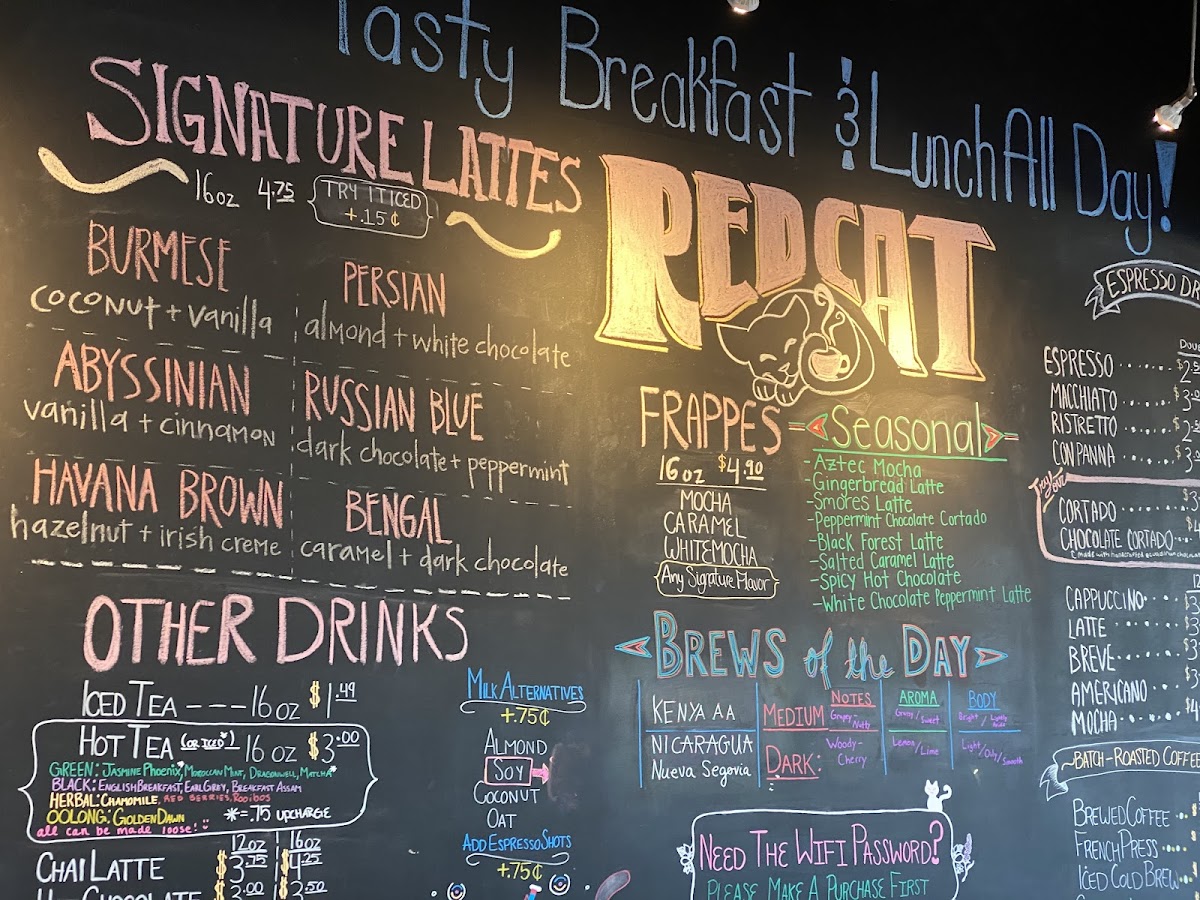 Tasty Breakfast & Lunch All Day!
SIGNATURE LATTES
16oz 4.75
TRY IT ICED
+.15¢
BURMESE
coconut + vanilla
PERSIAN
almond + white chocolate
ABYSSINIAN
vanilla + cinnamon
RUSSIAN BLUE
dark chocolate + peppermint
HAVANA BROWN
hazelnut + irish creme
BENGAL
caramel + dark chocolate
OTHER DRINKS
ICED TEA ---16oz $1.49
HOT TEA (OR ICED*) 16 oz $3.00
GREEN: JASMINE PHOENIX*, MOROCCAN MINT, DRAGONWELL, MATCHA*
BLACK: ENGLISH BREAKFAST, EARL GREY, BREAKFAST ASSAM
HERBAL: CHAMOMILE, RED BERRIES, ROOIBOS
OOLONG: GOLDEN DAWN *=.75 UPCHARGE
all can be made loose!
12oz 16oz
CHAI LATTE $3.75 $4.25
CHOCOLATE $3.00 $3.50
MILK ALTERNATIVES
+.75¢
ALMOND
SOY
COCONUT
OAT
ADD ESPRESSO SHOTS
+.75¢
RED CAT
FRAPPES
16oz $4.90
MOCHA
CARAMEL
WHITE MOCHA
Any Signature Flavor
Seasonal
-Aztec Mocha
-Gingerbread Latte
-Smores Latte
-Peppermint Chocolate Cortado
-Black Forest Latte
-Salted Caramel Latte
-Spicy Hot Chocolate
-White Chocolate Peppermint Latte
BREWS of the DAY
NOTES AROMA BODY
KENYA AA MEDIUM
NICARAGUA
Nueva Segovia
DARK:
Woody-
Cherry
Lemon/Lime
NEED THE WIFI PASSWORD?
PLEASE MAKE A PURCHASE FIRST
ESPRESSO DR
ESPRESSO
MACCHIATO
RISTRETTO
CON PANNA
Try Our
CORTADO
CHOCOLATE CORTADO
CAPPUCCINO
LATTE
BREVE
AMERICANO
MOCHA
~BATCH-ROASTED COFFEE
BREWED COFFEE
FRENCH PRESS
ICED COLD BREW